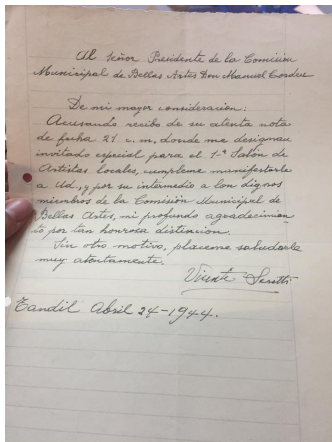 Al Señor Presidente de la Comisión
Municipal de Bellas Artes Don Manuel Cordeu
De mi mayor consideración:
Acusando recibo de su atenta nota
de fecha 21 c.m, donde me designan
invitado especial para el 1er Salón de
Artistas locales, cumpleme manifestarle
a Ud., y por su intermedio a los dignos
miembros de la Comisión Municipal de
Bellas Artes, mi profundo agradecimien
to por tan honrosa distinción.
Sin otro motivo, pláceme saludarle
muy atentamente.
Vicente
Tandil Abril 24-1944.